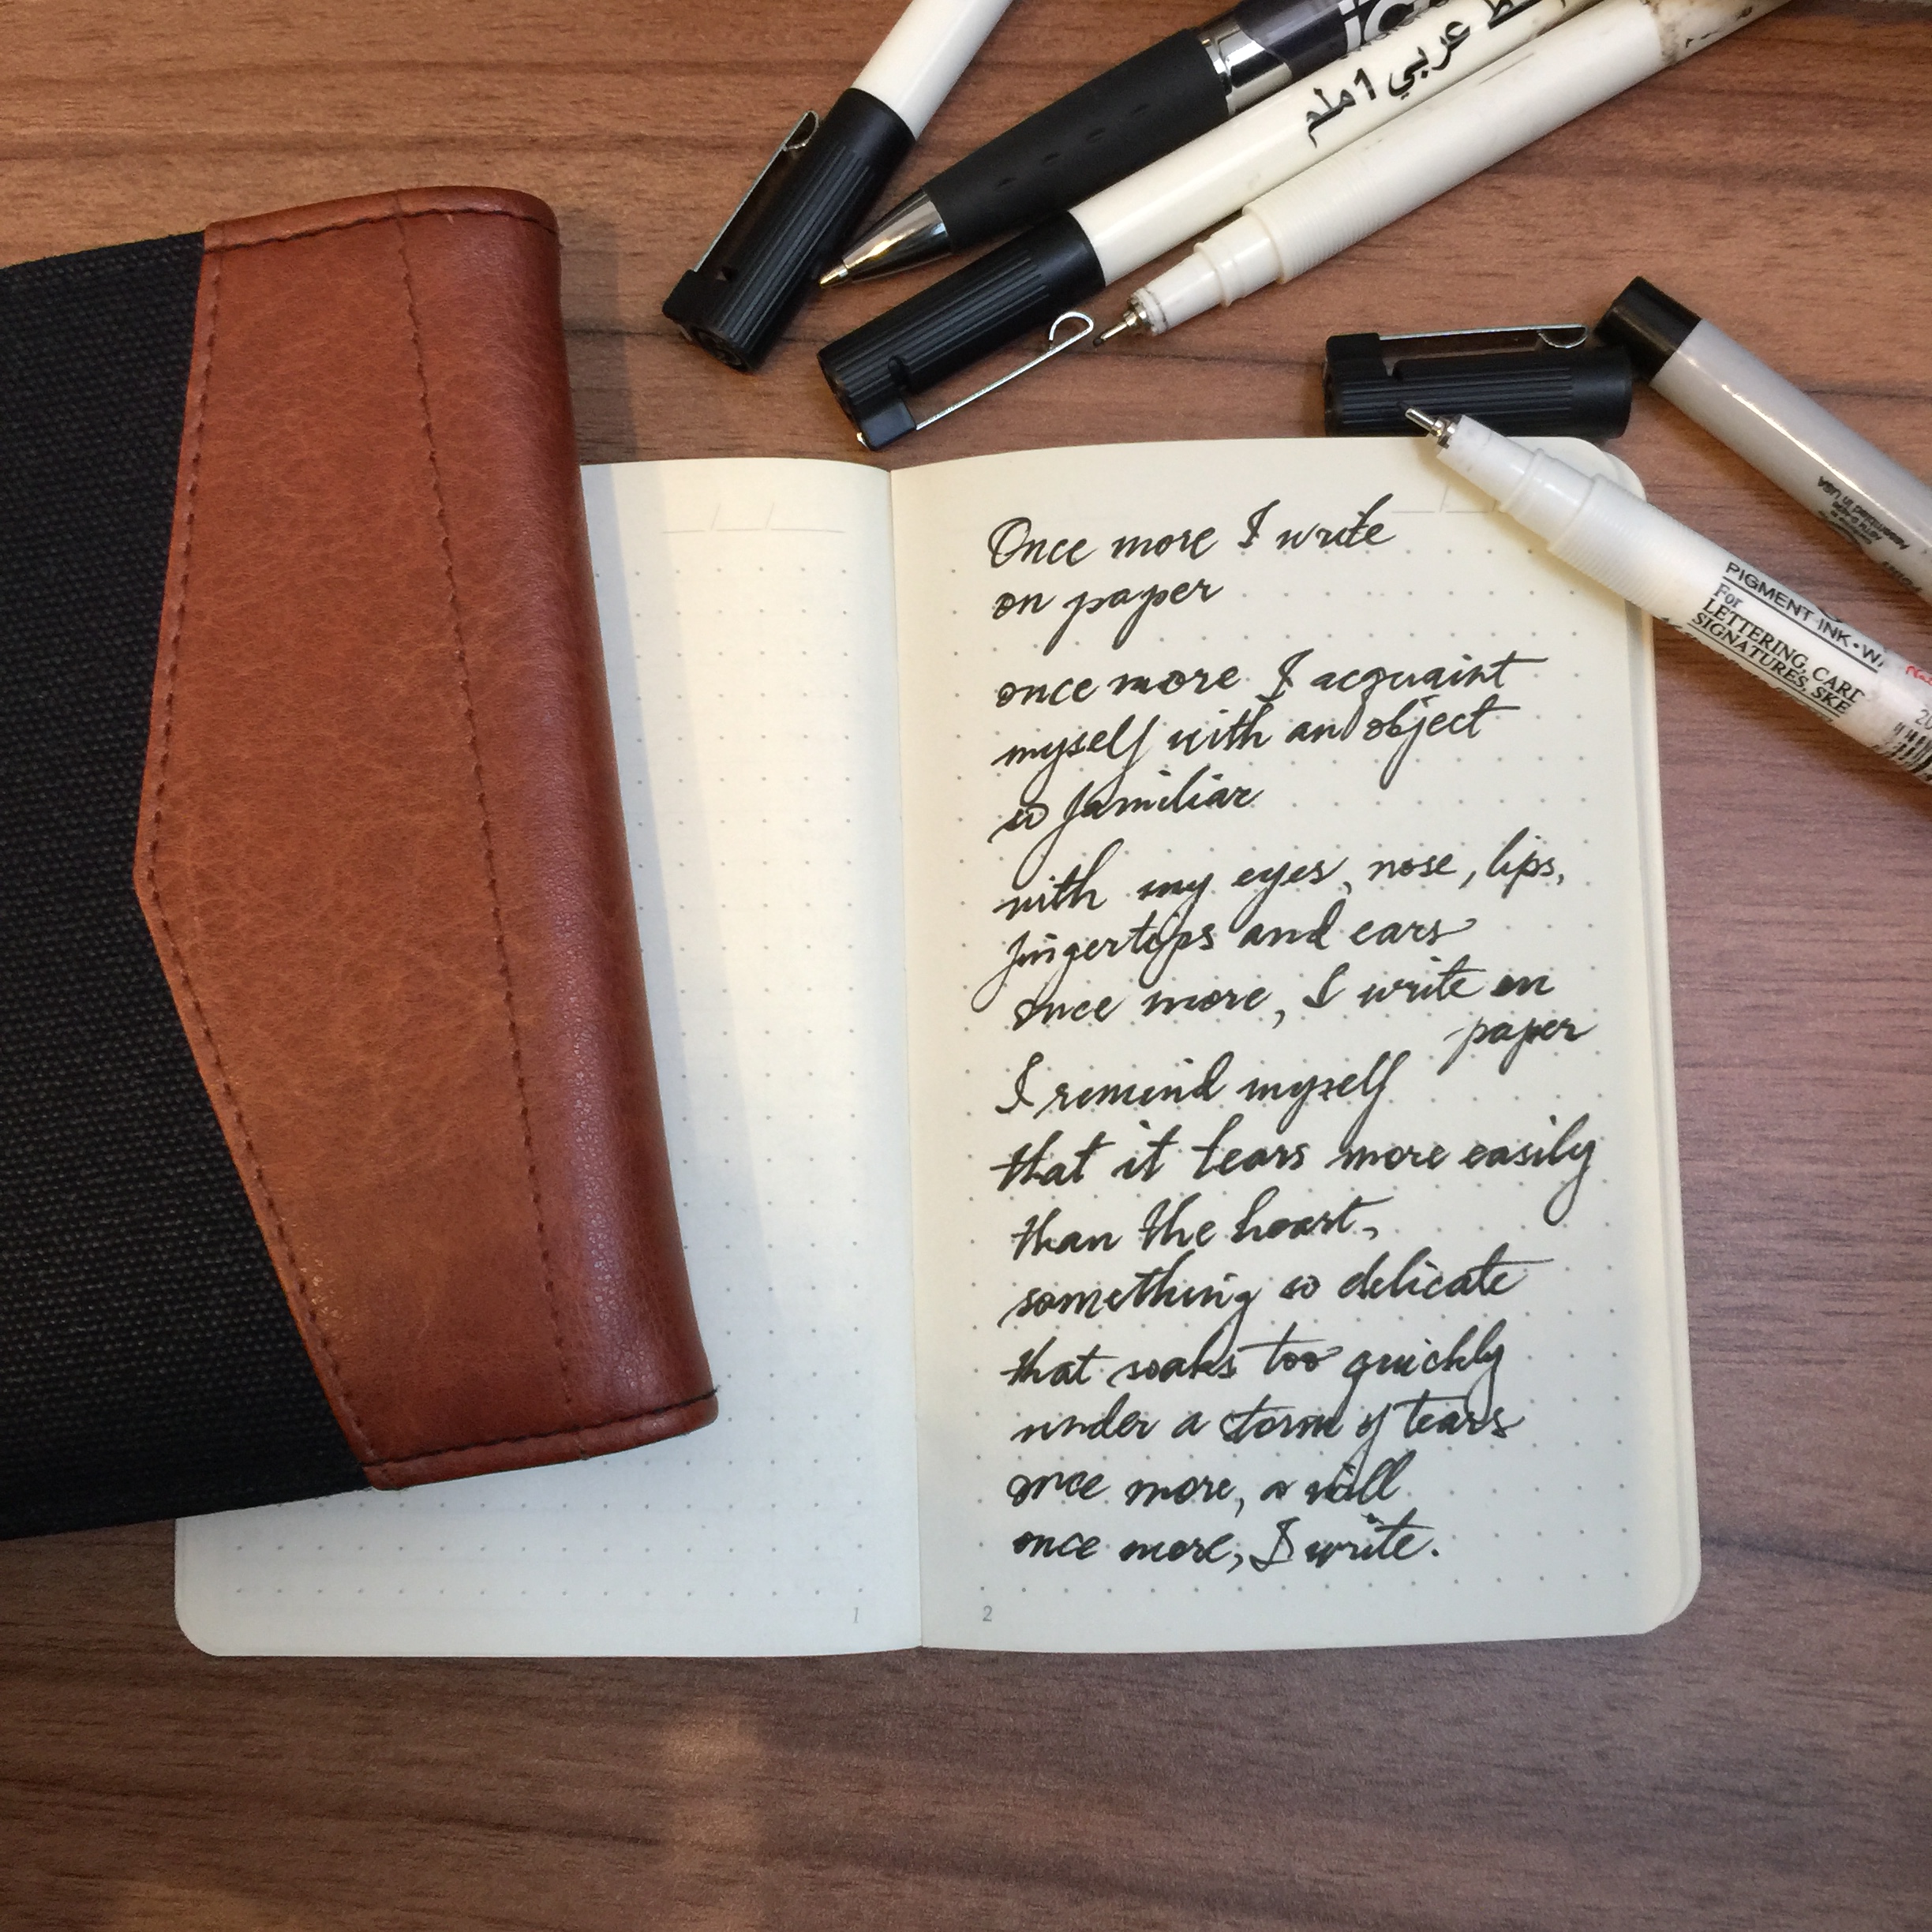 خط عربي 1ملم
PIGMENT INK • W
For
LETTERING, CARD
SIGNATURES, SKE
in USA
Once more I write
on paper
once more I acquaint
myself with an object
so familiar
with my eyes, nose, lips,
fingertips and ears
once more, I write on
paper
I remind myself
that it tears more easily
than the heart,
something so delicate
that soaks too quickly
under a storm of tears
once more, a will
once more, I write.
1
2